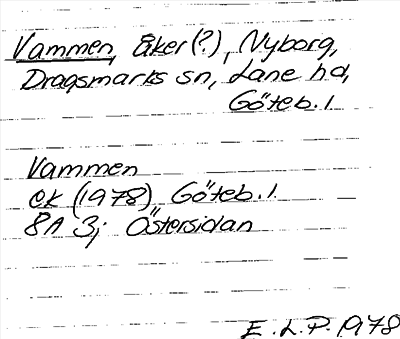 Vammen, åker(?), Nyborg,
Dragsmarks sn, Lane hd,
Göteb. l
Vammen
ek (1978), Göteb. l
8A 3j Östersidan
E.L.P. 1978